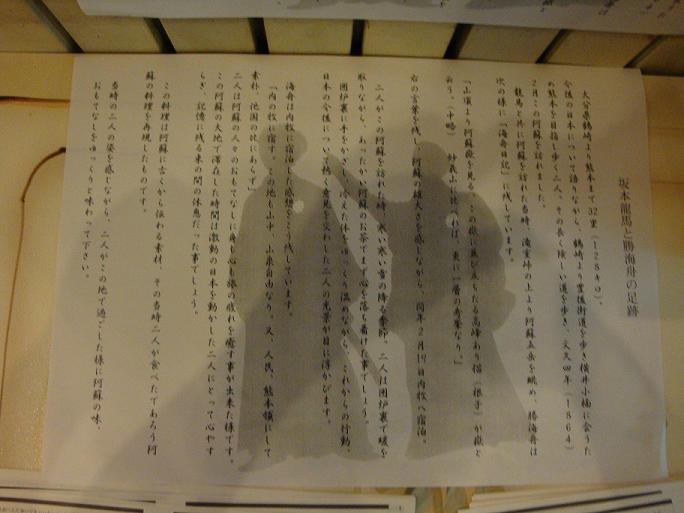 坂本龍馬と勝海舟の足跡
大分県鶴崎より熊本まで32里（128キロ）。
今後の日本について語りながら、鶴崎より豊後街道を歩き横井小楠に会うた
め熊本を目指し歩く二人。その長く険しい道を歩き、文久四年（1864）
2月この阿蘇を訪れました。
龍馬と共に阿蘇を訪れた当時、滝室坂の上より阿蘇五岳を眺め、勝海舟は
次の様に「海舟日記」に残しています。
「山頂より阿蘇嶽を見る。この嶽に並び立ちたる高峰あり猫（根子）が嶽と
云う。（中略） 妙義山に比べれば、更に一層の奇峯なり。」
右の言葉を残し、阿蘇の雄大さを感じながら、同年2月19日内牧へ宿泊。
二人がこの阿蘇を訪れた時、寒い寒い雪の降る季節。二人は囲炉裏で暖を
取りながら、あったかい阿蘇のお茶でまず心を落ち着けた事でしょう。
囲炉裏に手をかざし、冷えた体をゆっくり温めながら、これからの行動、
日本の今後について熱く意見を交わした二人の光景が目に浮かびます。
海舟は内牧に宿泊した感想をこう残しています。
「内の牧に宿す。この地も山中、山泉自由なり。又、人民、熊本領にして
素朴、他国の比にあらず」
二人は阿蘇の人々のおもてなしに身も心も旅の疲れを癒す事が出来た様です。
この阿蘇の大地で滞在した時間は激動の日本を動かした二人にとって心やす
らぎ、記憶に残る束の間の休息だった事でしょう。
この料理は阿蘇に古くから伝わる素材、その当時二人が食べたであろう阿
蘇の料理を再現したものです。
当時の二人の姿を感じながら、二人がこの地で過ごした様に阿蘇の味、
おもてなしをゆっくりと味わって下さい。